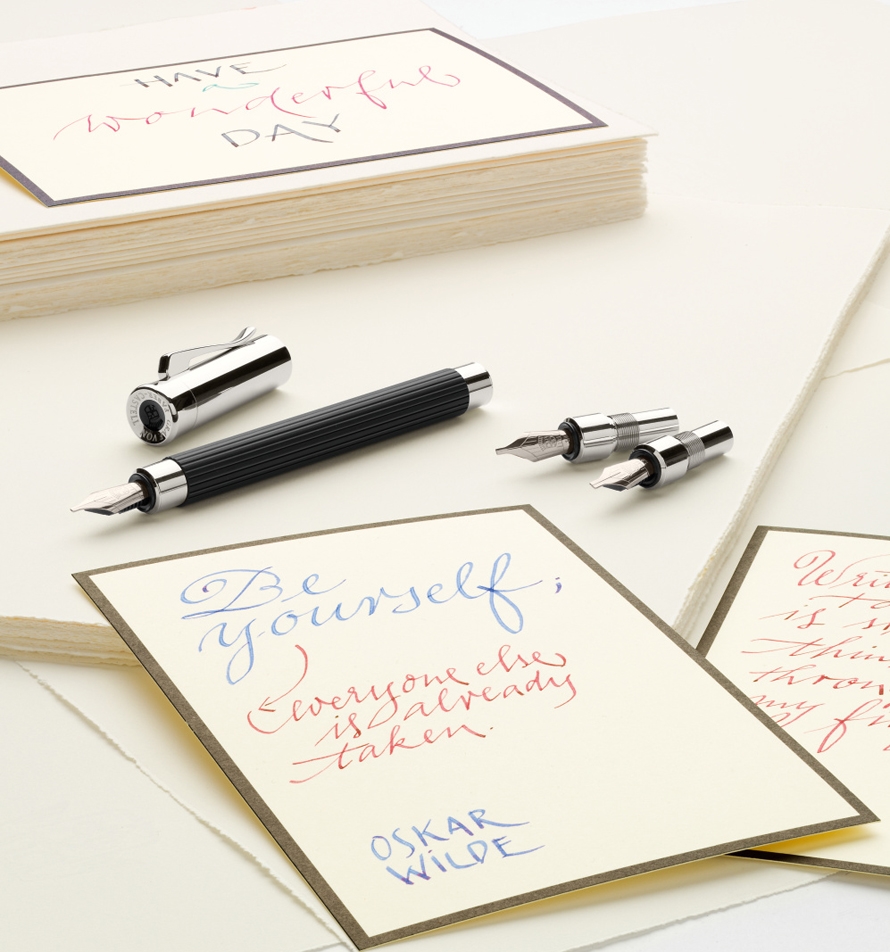 HAVE
wonderful
DAY
Be
yourself;
everyone else
is already
taken.
OSKAR
WILDE
is
my